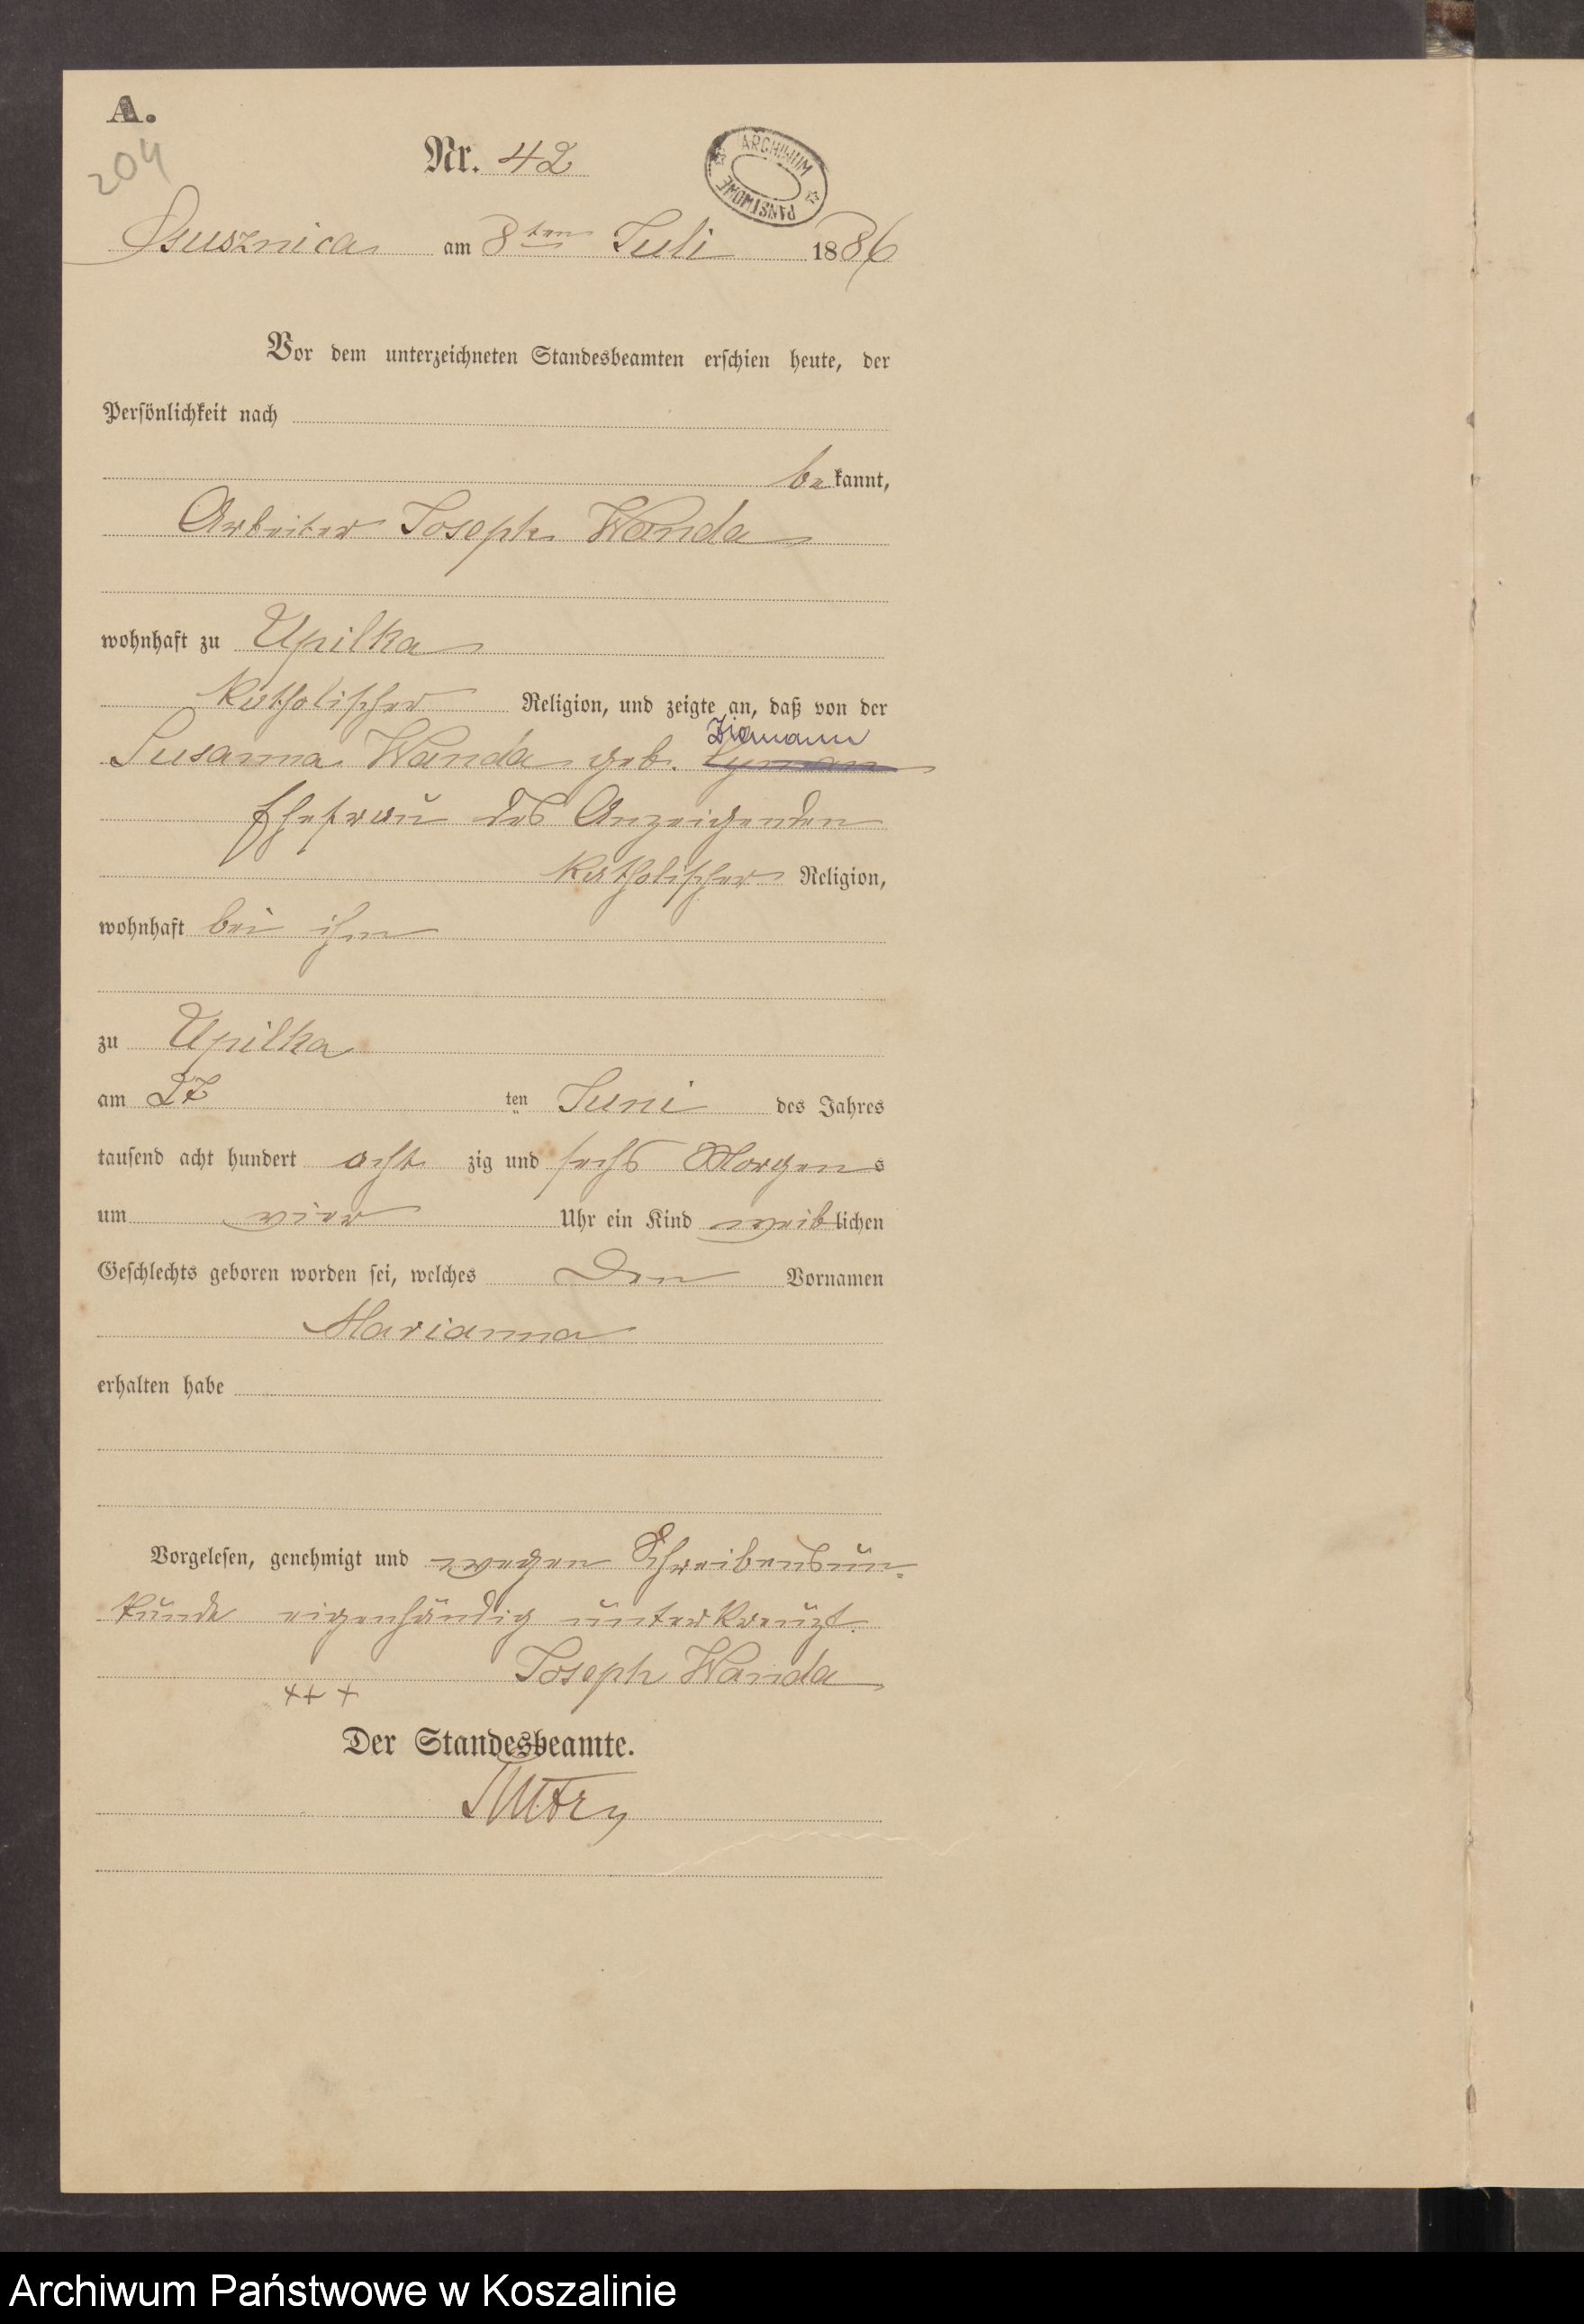 A.
204
Nr. 42
ARCHIWUM PAŃSTWOWE
Ossusznica am 8ten Juli 1886
Vor dem unterzeichneten Standesbeamten erschien heute, der
Persönlichkeit nach
bekannt,
Arbeiter Joseph Wanda
wohnhaft zu Upilka
katholischer Religion, und zeigte an, daß von der
Ziemann
Susanna Wanda geb. Cyman
Ehefrau des Anzeigenden
katholischer Religion,
wohnhaft bei ihm
zu Upilka
am 27 ten Juni des Jahres
tausend acht hundert acht zig und sechs Morgens
um vier Uhr ein Kind weiblichen
Geschlechts geboren worden sei, welches den Vornamen
Marianna
erhalten habe
Vorgelesen, genehmigt und wegen Schreibensun-
kunde eigenhändig unterkreuzt.
Joseph Wanda
+++
Der Standesbeamte.
Archiwum Państwowe w Koszalinie